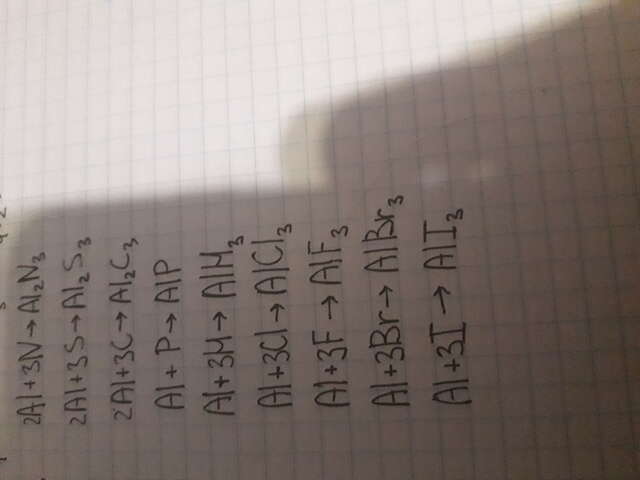 2Al+3N→Al₂N₃
2Al+3S→Al₂S₃
2Al+3C→Al₂C₃
Al+P→AlP
Al+3H→AlH₃
Al+3Cl→AlCl₃
Al+3F→AlF₃
Al+3Br→AlBr₃
Al+3I→AlI₃